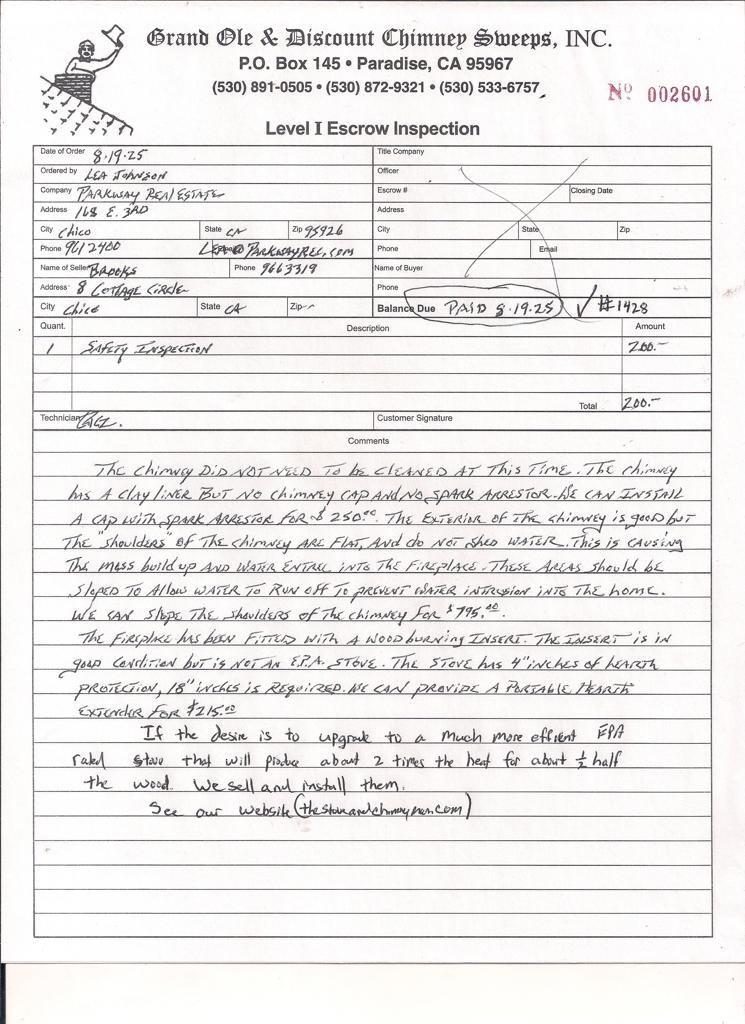 Grand Ole & Discount Chimney Sweeps, INC.
P.O. Box 145 • Paradise, CA 95967
(530) 891-0505 • (530) 872-9321 • (530) 533-6757
Nº 002601
Level I Escrow Inspection
Date of Order 8.19.25 Title Company
Ordered by LEA JOHNSON Officer
Company PARKWAY REAL ESTATE Escrow # Closing Date
Address 168 E. 3RD Address
City Chico State CA Zip 95926 City State Zip
Phone 9612400 LEA@PARKWAYREC.COM Phone Email
Name of Seller BROOKS Phone 9663319 Name of Buyer
Address 8 COTTAGE CIRCLE Phone
City Chico State CA Zip Balance Due PAID 8.19.25 ✓ #1428
Quant. Description Amount
1 SAFETY INSPECTION 200.-
Total 200.-
Technician Customer Signature
Comments
THE CHIMNEY DID NOT NEED TO BE CLEANED AT THIS TIME. THE CHIMNEY
HAS A CLAY LINER BUT NO CHIMNEY CAP AND NO SPARK ARRESTOR. WE CAN INSTALL
A CAP WITH SPARK ARRESTOR FOR $250.00. THE EXTERIOR OF THE CHIMNEY IS GOOD BUT
THE "SHOULDERS" OF THE CHIMNEY ARE FLAT, AND DO NOT SHED WATER. THIS IS CAUSING
THE MOSS BUILD UP AND WATER ENTREE INTO THE FIREPLACE. THESE AREAS SHOULD BE
SLOPED TO ALLOW WATER TO RUN OFF TO PREVENT WATER INTRUSION INTO THE HOME.
WE CAN SLOPE THE SHOULDERS OF THE CHIMNEY FOR $795.00.
THE FIREPLACE HAS BEEN FITTED WITH A WOODBURNING INSERT. THE INSERT IS IN
GOOD CONDITION BUT IS NOT AN E.P.A. STOVE. THE STOVE HAS 4" INCHES OF HEARTH
PROTECTION, 18" INCHES IS REQUIRED. WE CAN PROVIDE A PORTABLE HEARTH
EXTENDER FOR $215.00
If the desire is to upgrade to a much more efficent EPA
rated stove that will produce about 2 times the heat for about ½ half
the wood. We sell and install them.
See our website (thestoveandchimneymen.com)